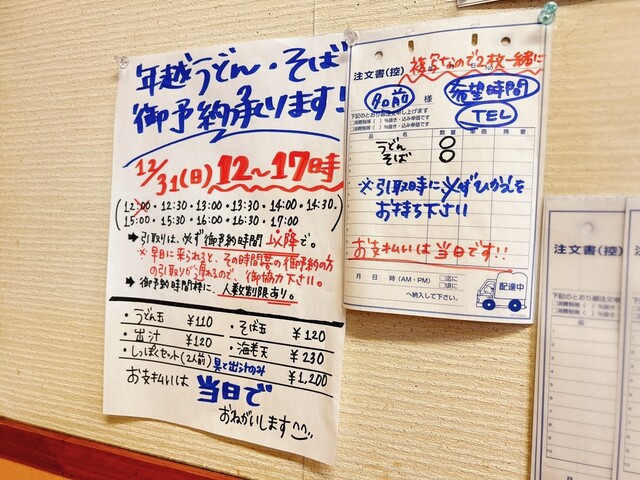 年越うどん・そば
御予約承ります!
12/31(日) 12～17時
(12:00・12:30・13:00・13:30・14:00・14:30・
15:00・15:30・16:00・16:30・17:00)
→ 引取りは、必ず御予約時間 以降で。
※ 早目に来られると、その時間帯の御予約の方
の引取りが遅れるので、御協力下さい。
→ 御予約時間様に、人数制限あり。
・うどん玉 ¥110
・そば玉 ¥120
・出汁 ¥120
・海老天 ¥230
・しっぽくセット(2人前) 具と出汁のみ ¥1,200
お支払いは 当日で
おねがいします^^
注文書(控)
複写なので2枚一緒に
お名前 様
希望時間
TEL
下記のとおり御注文申し上げます
□消費税等( )%抜き・込み単価です
□消費税等( )%抜き・込み単価です
品 名 数 量 単 価 摘 要
うどん ○
そば ○
※引取時に必ずひかえを
お持ち下さい
お支払いは当日です!!
月 日 時(AM・PM) □迄に
□頃に
へ納入して下さい。
配達中
注文書(控)
下記のとおり御注文
□消費税等( )%
□消費税等( )%
品
注